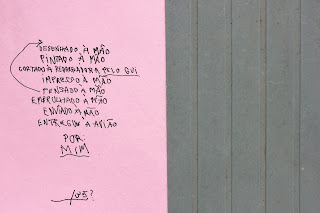 DESENHADO À MÃO
PINTADO À MÃO
CORTADO À REBARBADORA PELO GUI
IMPRESSO À MÃO
PENSADO À MÃO
EMBRULHADO À MÃO
ENVIADO À MÃO
ENTREGUE A AVIÃO
POR:
MIM